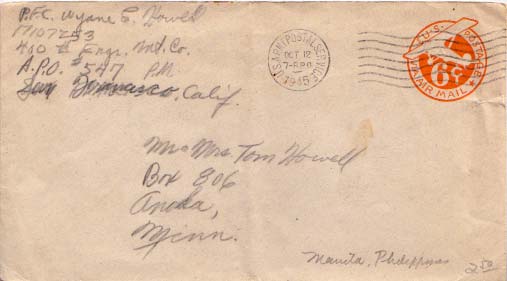 P.F.C. Wyane E. Howell
17107253
460th Engr. Co.
A.P.O. #547 P.M.
San Francisco, Calif.
U.S. ARMY POSTAL SERVICE
OCT 12
1945
U.S. POSTAGE
6¢
VIA AIR MAIL
Mrs Tom Howell
Box 806
Anoka,
Minn.
Manila, Philippines
2.50